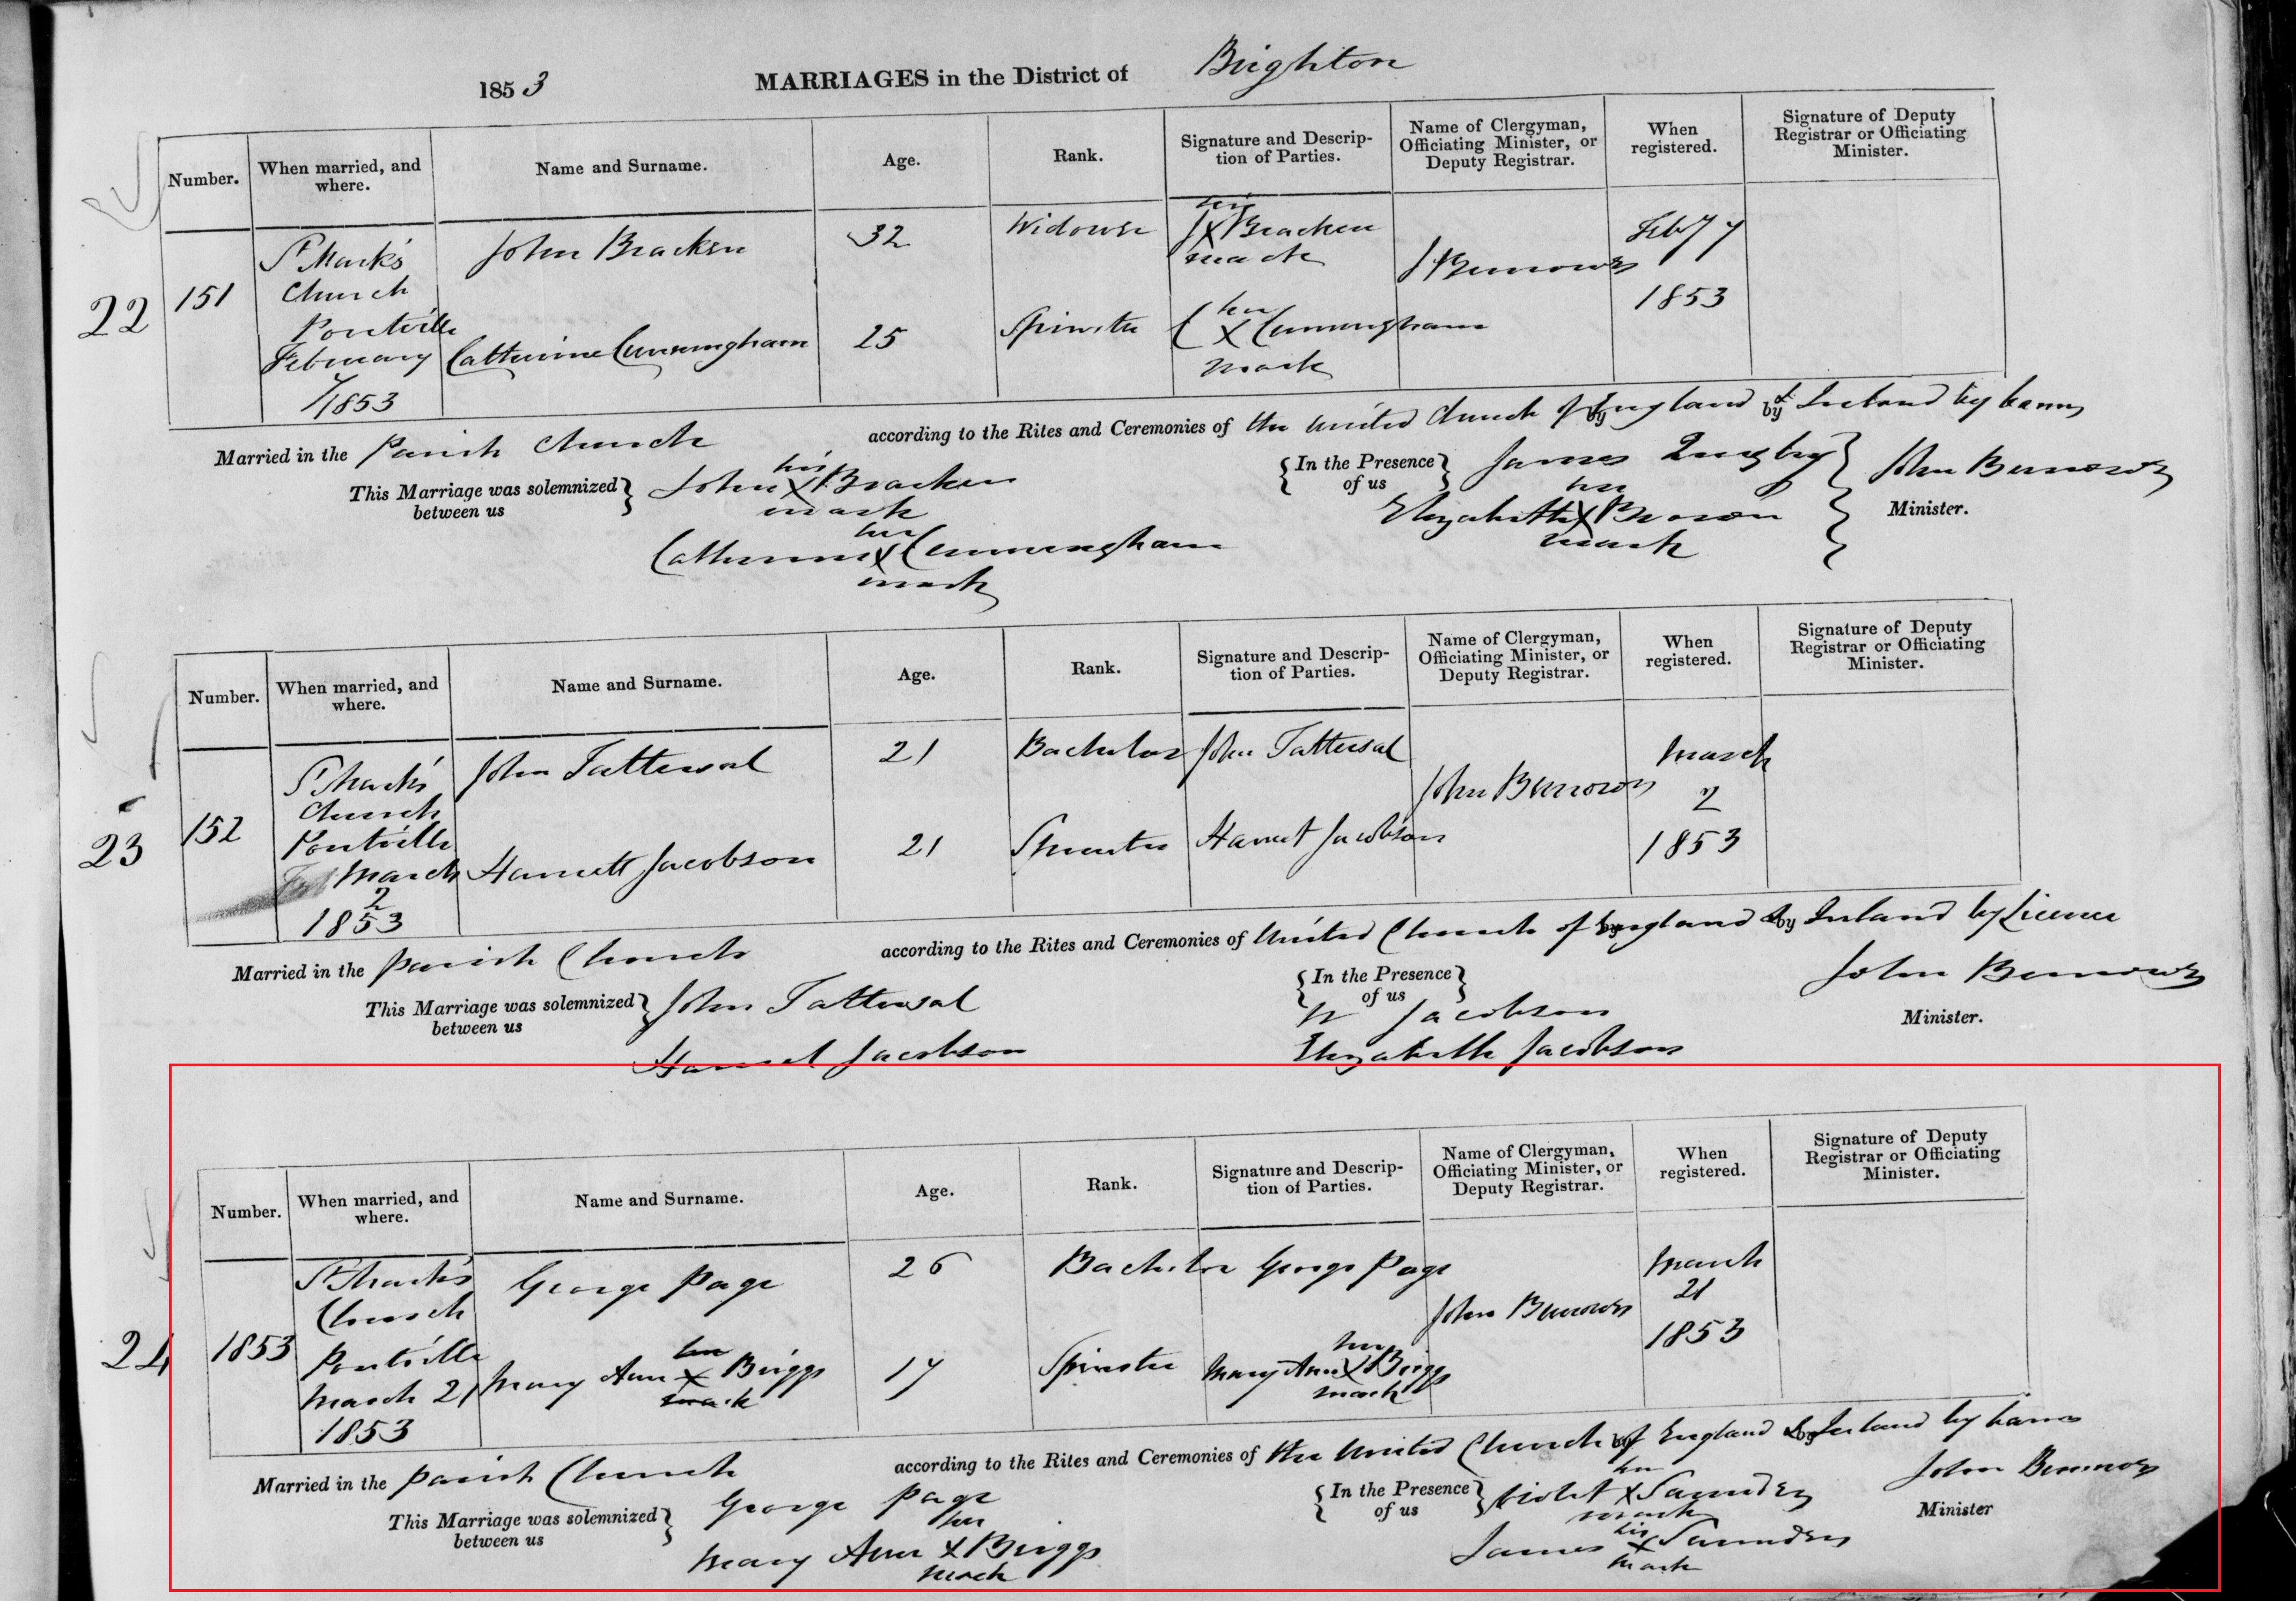 1853 MARRIAGES in the District of Brighton
Number. When married, and where. Name and Surname. Age. Rank. Signature and Description of Parties. Name of Clergyman, Officiating Minister, or Deputy Registrar. When registered. Signature of Deputy Registrar or Officiating Minister.
22
151
St Mark's
Church
Pontville
February
7/1853
John Bracken 32 Widower
his
J X Bracken
mark
J Burrowes
Feby 7
1853
Catherine Cunningham 25 Spinster
her
C X Cunningham
mark
Married in the Parish Church according to the Rites and Ceremonies of the United Church of England & Ireland by banns
This Marriage was solemnized between us
his
John X Bracken
mark
her
Catherine X Cunningham
mark
In the Presence of us
James
her
Elizabeth X Brown
mark
John Burrowes
Minister.
Number. When married, and where. Name and Surname. Age. Rank. Signature and Description of Parties. Name of Clergyman, Officiating Minister, or Deputy Registrar. When registered. Signature of Deputy Registrar or Officiating Minister.
23
152
St Mark's
Church
Pontville
March
2
1853
John Tattersal 21 Bachelor John Tattersal
John Burrowes
March
2
1853
Harriett Jacobson 21 Spinster Harriet Jacobson
Married in the Parish Church according to the Rites and Ceremonies of United Church of England & Ireland by Licence
This Marriage was solemnized between us
John Tattersal
Harriet Jacobson
In the Presence of us
W Jacobson
Elizabeth Jacobson
John Burrowes
Minister.
Number. When married, and where. Name and Surname. Age. Rank. Signature and Description of Parties. Name of Clergyman, Officiating Minister, or Deputy Registrar. When registered. Signature of Deputy Registrar or Officiating Minister.
24
1853
St Mark's
Church
Pontville
March 21
1853
George Page 26 Bachelor George Page
John Burrowes
March
21
1853
her
Mary Ann X Briggs
mark
17 Spinster
her
Mary Ann X Briggs
mark
Married in the Parish Church according to the Rites and Ceremonies of the United Church of England & Ireland by banns
This Marriage was solemnized between us
George Page
her
Mary Ann X Briggs
mark
In the Presence of us
her
Violet X Saunders
mark
his
James X Saunders
mark
John Burrowes
Minister